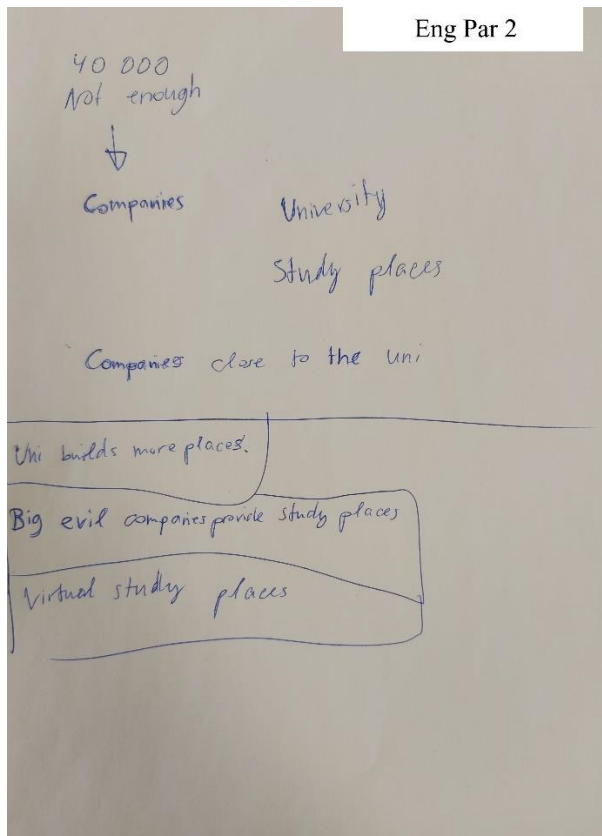 Eng Par 2
40 000
Not enough
Companies
University
Study places
Companies close to the uni
Uni builds more places.
Big evil companies provide study places
Virtual study places